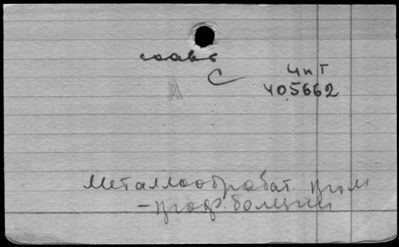 соавт
С
ЧиТ
405662
А
Металлообработ. пром
- проф. болезни